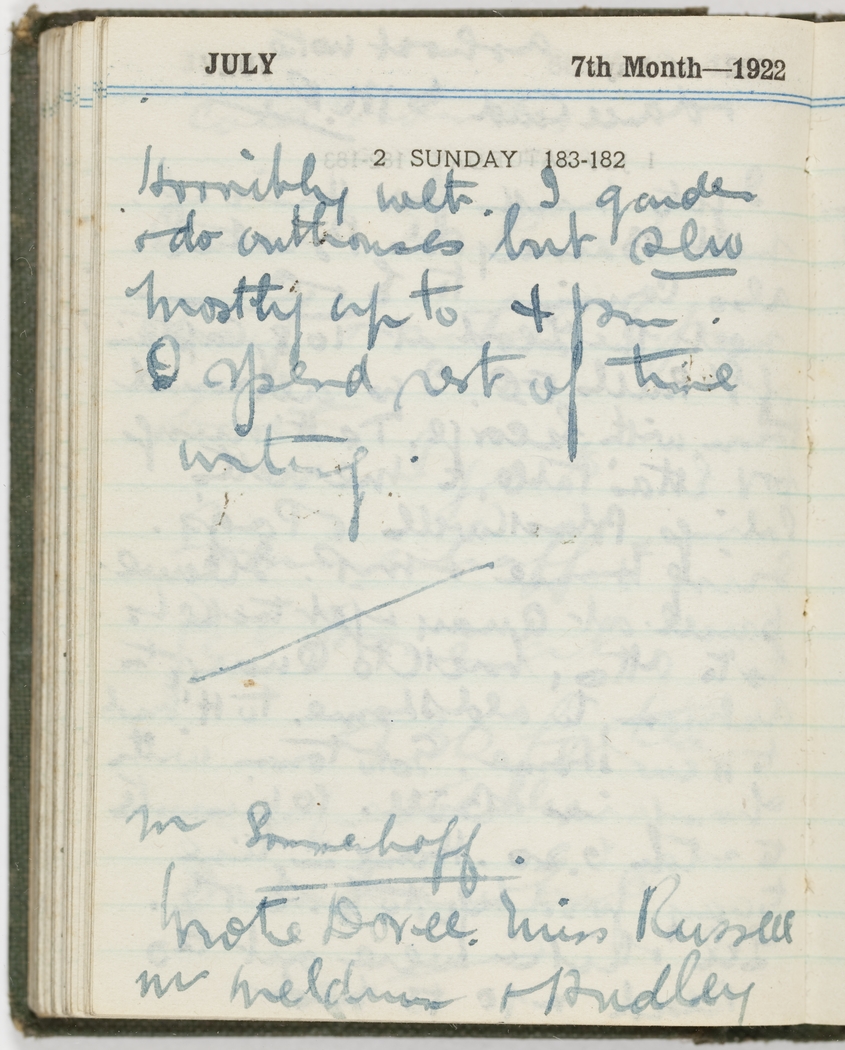 JULY 7th Month—1922
2 SUNDAY 183-182
Horribly wet. I garden
& do outhouses but sew
mostly up to 4 pm.
I spend rest of time
writing.
Mr Sommerhoff.
Wrote Doree. Miss Russell
Mr Meldrum & Dudley